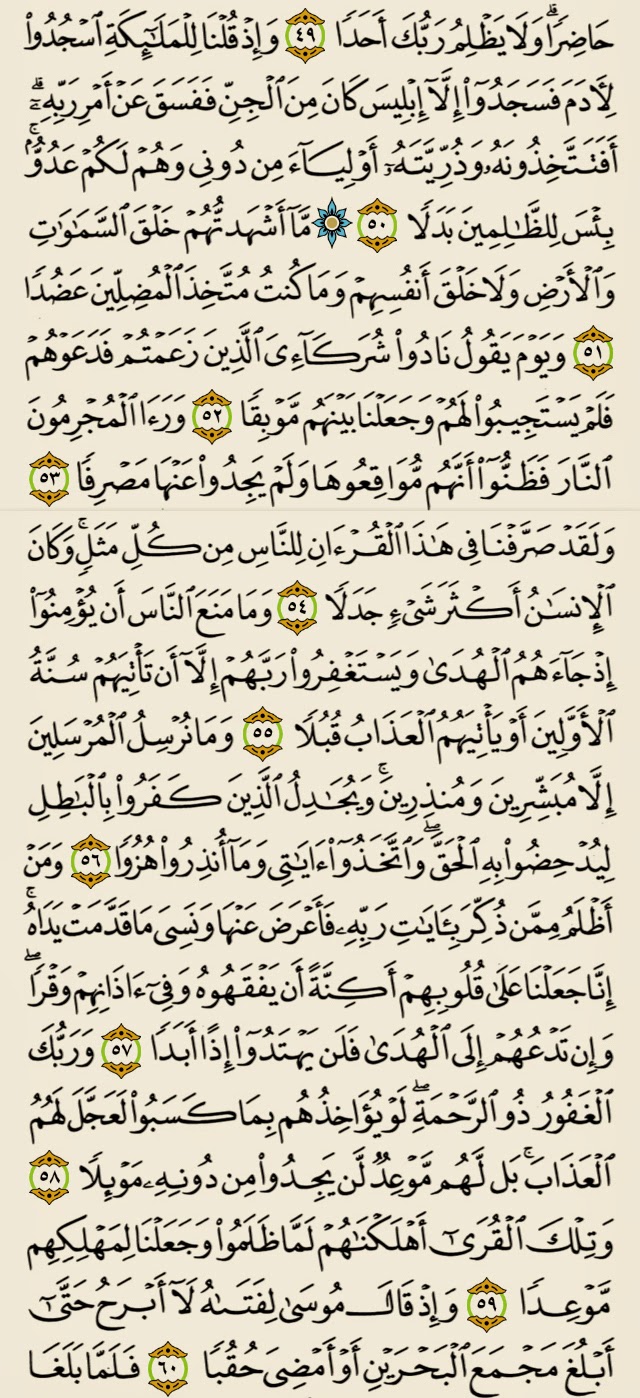 حَاضِرٗاۗ وَلَا يَظۡلِمُ رَبُّكَ أَحَدٗا ٤٩ وَإِذۡ قُلۡنَا لِلۡمَلَٰٓئِكَةِ ٱسۡجُدُواْ
لِأٓدَمَ فَسَجَدُوٓاْ إِلَّآ إِبۡلِيسَ كَانَ مِنَ ٱلۡجِنِّ فَفَسَقَ عَنۡ أَمۡرِ رَبِّهِۦٓۗ
أَفَتَتَّخِذُونَهُۥ وَذُرِّيَّتَهُۥٓ أَوۡلِيَآءَ مِن دُونِي وَهُمۡ لَكُمۡ عَدُوُّۢۚ
بِئۡسَ لِلظَّٰلِمِينَ بَدَلٗا ٥٠ مَّآ أَشۡهَدتُّهُمۡ خَلۡقَ ٱلسَّمَٰوَٰتِ
وَٱلۡأَرۡضِ وَلَا خَلۡقَ أَنفُسِهِمۡ وَمَا كُنتُ مُتَّخِذَ ٱلۡمُضِلِّينَ عَضُدٗا
٥١ وَيَوۡمَ يَقُولُ نَادُواْ شُرَكَآءِيَ ٱلَّذِينَ زَعَمۡتُمۡ فَدَعَوۡهُمۡ
فَلَمۡ يَسۡتَجِيبُواْ لَهُمۡ وَجَعَلۡنَا بَيۡنَهُم مَّوۡبِقٗا ٥٢ وَرَءَا ٱلۡمُجۡرِمُونَ
ٱلنَّارَ فَظَنُّوٓاْ أَنَّهُم مُّوَاقِعُوهَا وَلَمۡ يَجِدُواْ عَنۡهَا مَصۡرِفٗا ٥٣
وَلَقَدۡ صَرَّفۡنَا فِي هَٰذَا ٱلۡقُرۡءَانِ لِلنَّاسِ مِن كُلِّ مَثَلٖۚ وَكَانَ
ٱلۡإِنسَٰنُ أَكۡثَرَ شَيۡءٖ جَدَلٗا ٥٤ وَمَا مَنَعَ ٱلنَّاسَ أَن يُؤۡمِنُوٓاْ
إِذۡ جَآءَهُمُ ٱلۡهُدَىٰ وَيَسۡتَغۡفِرُواْ رَبَّهُمۡ إِلَّآ أَن تَأۡتِيَهُمۡ سُنَّةُ
ٱلۡأَوَّلِينَ أَوۡ يَأۡتِيَهُمُ ٱلۡعَذَابُ قُبُلٗا ٥٥ وَمَا نُرۡسِلُ ٱلۡمُرۡسَلِينَ
إِلَّا مُبَشِّرِينَ وَمُنذِرِينَۚ وَيُجَٰدِلُ ٱلَّذِينَ كَفَرُواْ بِٱلۡبَٰطِلِ
لِيُدۡحِضُواْ بِهِ ٱلۡحَقَّۖ وَٱتَّخَذُوٓاْ ءَايَٰتِي وَمَآ أُنذِرُواْ هُزُوٗا ٥٦ وَمَنۡ
أَظۡلَمُ مِمَّن ذُكِّرَ بِـَٔايَٰتِ رَبِّهِۦ فَأَعۡرَضَ عَنۡهَا وَنَسِيَ مَا قَدَّمَتۡ يَدَاهُۚ
إِنَّا جَعَلۡنَا عَلَىٰ قُلُوبِهِمۡ أَكِنَّةً أَن يَفۡقَهُوهُ وَفِيٓ ءَاذَانِهِمۡ وَقۡرٗاۖ
وَإِن تَدۡعُهُمۡ إِلَى ٱلۡهُدَىٰ فَلَن يَهۡتَدُوٓاْ إِذًا أَبَدٗا ٥٧ وَرَبُّكَ
ٱلۡغَفُورُ ذُو ٱلرَّحۡمَةِۖ لَوۡ يُؤَاخِذُهُم بِمَا كَسَبُواْ لَعَجَّلَ لَهُمُ
ٱلۡعَذَابَۚ بَل لَّهُم مَّوۡعِدٞ لَّن يَجِدُواْ مِن دُونِهِۦ مَوۡئِلٗا ٥٨
وَتِلۡكَ ٱلۡقُرَىٰٓ أَهۡلَكۡنَٰهُمۡ لَمَّا ظَلَمُواْ وَجَعَلۡنَا لِمَهۡلِكِهِم
مَّوۡعِدٗا ٥٩ وَإِذۡ قَالَ مُوسَىٰ لِفَتَىٰهُ لَآ أَبۡرَحُ حَتَّىٰٓ
أَبۡلُغَ مَجۡمَعَ ٱلۡبَحۡرَيۡنِ أَوۡ أَمۡضِيَ حُقُبٗا ٦٠ فَلَمَّا بَلَغَا